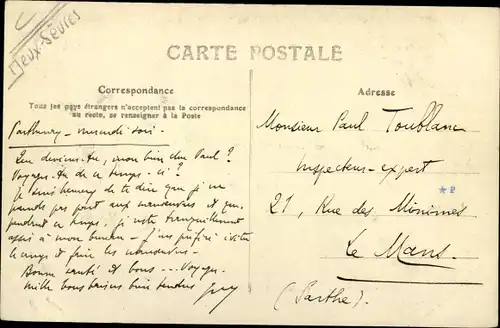 Deux-Sèvres
CARTE POSTALE
Correspondance
Tous les pays étrangers n'acceptent pas la correspondance
au recto, se renseigner à la Poste
Parthenay - mercredi soir.
Que deviens-tu, mon bien cher Paul ?
Voyages-tu de ce temps-ci ?
de te dire que je ne
prends pas part aux manœuvres et que,
pendant ce temps, je reste tranquillement
assis à mon bureau - J'ai préféré éviter
le rang et faire les manœuvres.
Bonne santé et bons --- voyages.
Mille bons baisers bien tendres
Adresse
Monsieur Paul Toublanc
Inspecteur-expert
21, Rue des Minimes
Le Mans.
(Sarthe).